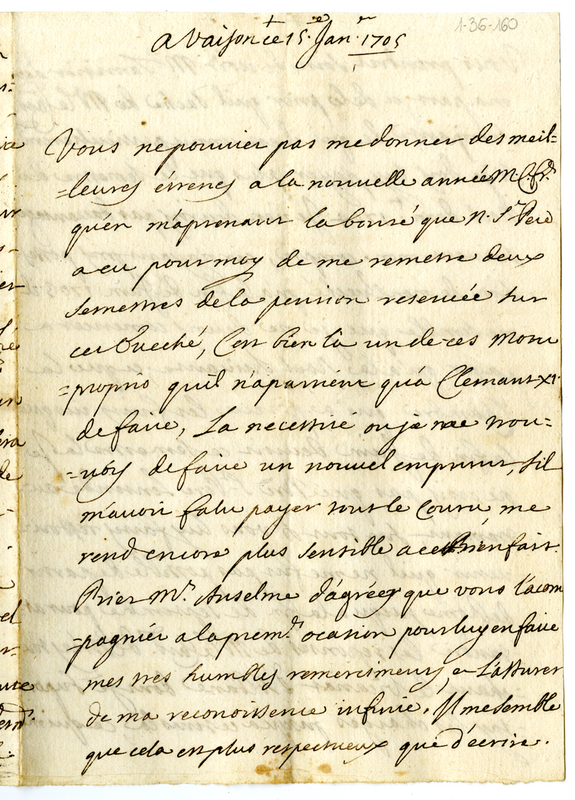 1-36-160
a Vaison ce 15e Janr 1705
Vous ne pouvier pas me donner des meil-
=leures étrenes a la nouvelle année M
qu'en m'aprenant la bonté que N. St Pere
a eu pour moy de me remetre deux
semestres de la pension reservée sur
cet Eveché, C'est bien là un de ces Motu
=proprio qu'il n'apartient qu'à Clemant XI.
de faire, La necessité ou je me trou-
=vois de faire un nouvel emprunt, s'il
m'avoit falu payer tout le couru, me
rend encore plus sensible a ce Bienfait.
Prier Mr. Anselme d'agréer que vous l'acom
=pagnier a la premre ocasion pour luy en faire
mes tres humbles remerciments, et L'assurer
de ma reconoissence infinie. Il me semble
que cela est plus respectueux que d'écrire.